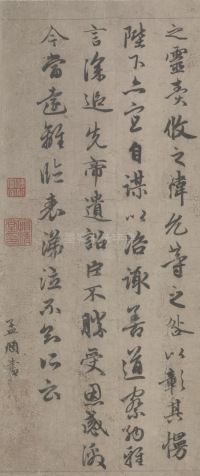 之靈責攸之禕允等之咎以彰其慢
陛下亦宜自謀以咨諏善道察納雅
言深追先帝遺詔臣不勝受恩感激
今當遠離臨表涕泣不知所云
孟頫書